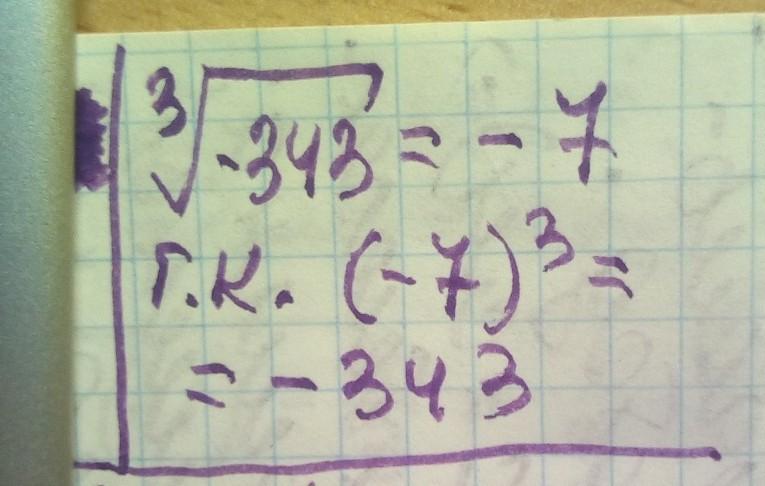 ³√-343 = - 7
т.к. (-7)³ =
= - 343